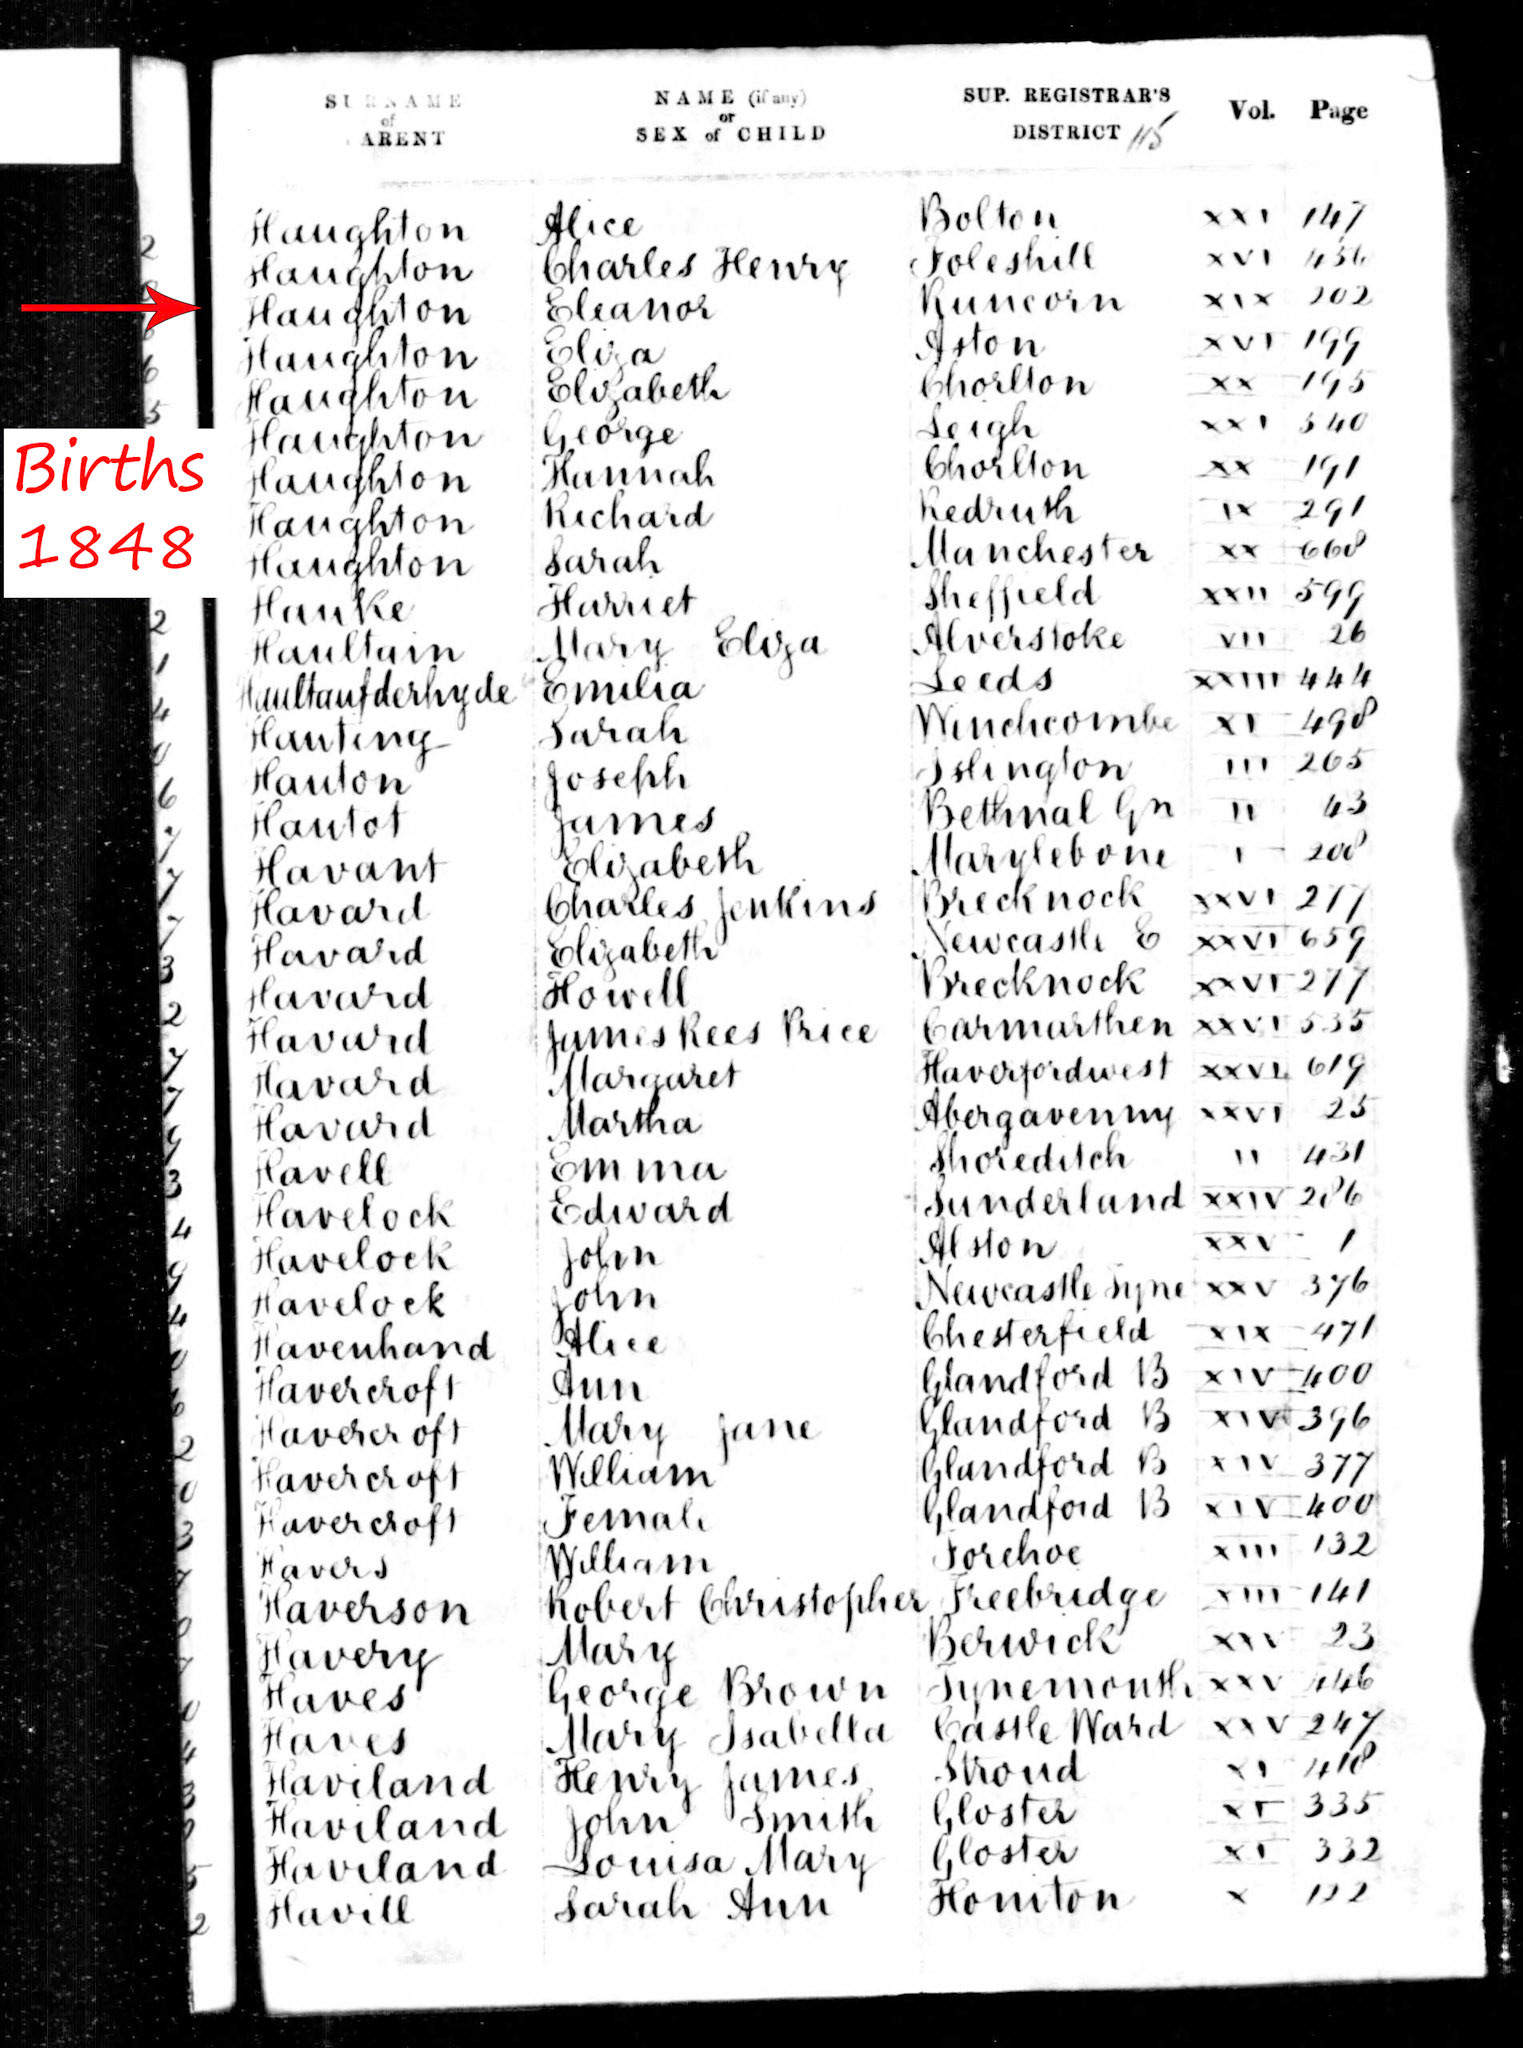 SURNAME of PARENT NAME (if any) or SEX of CHILD SUP. REGISTRAR'S DISTRICT 115 Vol. Page
Haughton Alice Bolton XXI 147
Haughton Charles Henry Foleshill XVI 456
Haughton Eleanor Runcorn XIX 202
Haughton Eliza Aston XVI 199
Haughton Elizabeth Chorlton XX 195
Haughton George Leigh XXI 540
Haughton Hannah Chorlton XX 191
Haughton Richard Redruth IX 291
Haughton Sarah Manchester XX 668
Hauke Harriet Sheffield XXII 599
Haultain Mary Eliza Alverstoke VII 26
Haultaufderhyde Emilia Leeds XXIII 444
Hauting Sarah Winchcombe XI 498
Hauton Joseph Islington III 265
Hautot James Bethnal Gn II 43
Havant Elizabeth Marylebone I 208
Havard Charles Jenkins Brecknock XXVI 277
Havard Elizabeth Newcastle E XXVI 659
Havard Howell Brecknock XXVI 277
Havard James Rees Price Carmarthen XXVI 535
Havard Margaret Haverfordwest XXVI 619
Havard Martha Abergavenny XXVI 25
Havell Emma Shoreditch II 431
Havelock Edward Sunderland XXIV 286
Havelock John Alston XXV 1
Havelock John Newcastle Tyne XXV 376
Havenhand Alice Chesterfield XIX 471
Havercroft Ann Glandford B XIV 400
Havercroft Mary Jane Glandford B XIV 396
Havercroft William Glandford B XIV 377
Havercroft Female Glandford B XIV 400
Havers William Forehoe XIII 132
Haverson Robert Christopher Freebridge XIII 141
Havery Mary Berwick XXV 23
Haves George Brown Tynemouth XXV 446
Haves Mary Isabella Castle Ward XXV 247
Haviland Henry James Stroud XI 418
Haviland John Smith Gloster XI 335
Haviland Louisa Mary Gloster XI 332
Havill Sarah Ann Honiton X 122
Births
1848